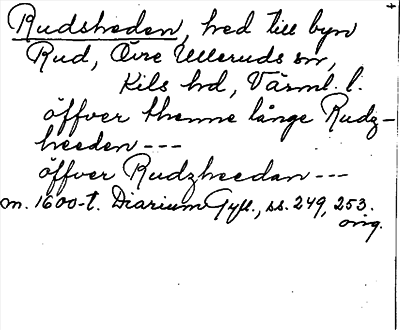 Rudsheden, hed till byn
Rud, Övre Ulleruds sn,
Kils hd, Värml. l.
öffver thenne långe Rudz-
heeden ---
öffver Rudzheedan ---
m. 1600-t. Diarium Gyll., ss. 249, 253.
orig.